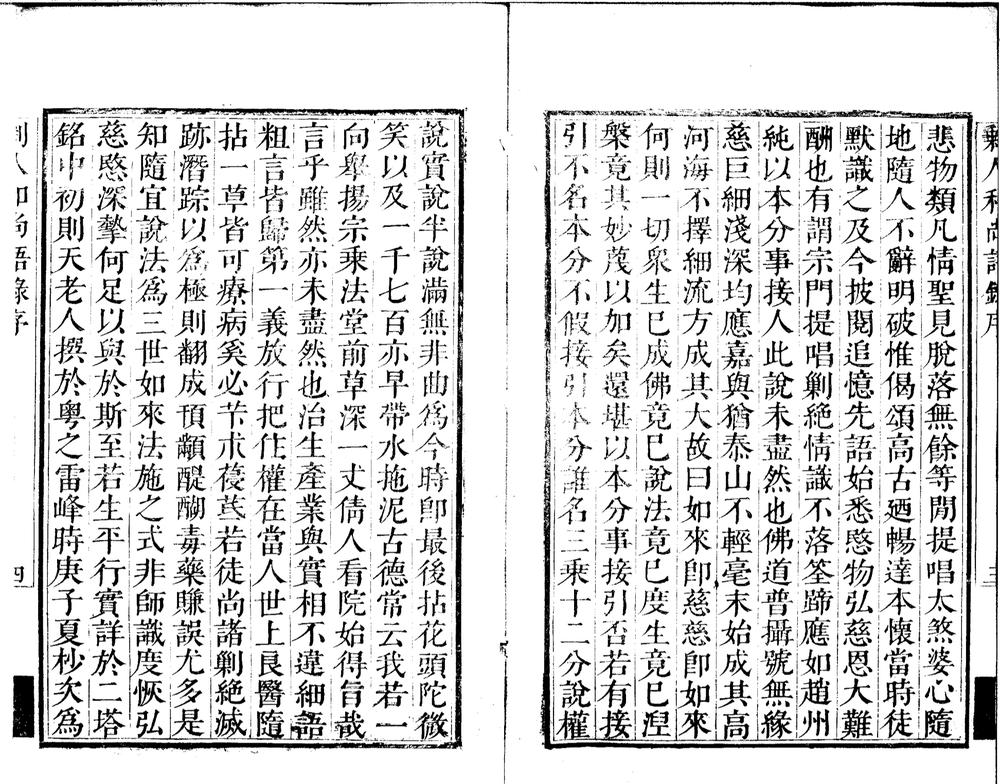 悲物類凡情聖見脫落無餘等閒提唱太煞婆心隨
地隨人不辭明破惟偈頌高古廼暢達本懷當時徒
默識之及今披閱追憶先語始悉愍物弘慈恩大難
酬也有謂宗門提唱剿絕情識不落筌蹄應如趙州
純以本分事接人此說未盡然也佛道普攝號無緣
慈巨細淺深均應嘉與猶泰山不輕毫末始成其高
河海不擇細流方成其大故曰如來卽慈慈卽如來
何則一切衆生巳成佛竟巳說法竟巳度生竟巳涅
槃竟其妙蔑以加矣還堪以本分事接引否若有接
引不名本分不假接引本分誰名三乘十二分說權
說實說半說滿無非曲爲今時卽最後拈花頭陀微
笑以及一千七百亦早帶水拖泥古德常云我若一
向舉揚宗乘法堂前草深一丈倩人看院始得旨哉
言乎雖然亦未盡然也治生產業與實相不違細語
粗言皆歸第一義放行把住權在當人世上良醫隨
拈一草皆可療病奚必芣朮葠芪若徒尚諸剿絕滅
跡潛踪以爲極則翻成頂顙醍醐毒藥賺誤尤多是
知隨宜說法爲三世如來法施之式非師識度恢弘
慈愍深摯何足以與於斯至若生平行實詳於二塔
銘中初則天老人撰於粵之雷峰時庚子夏杪次爲
剩人和尚語錄序
三
四